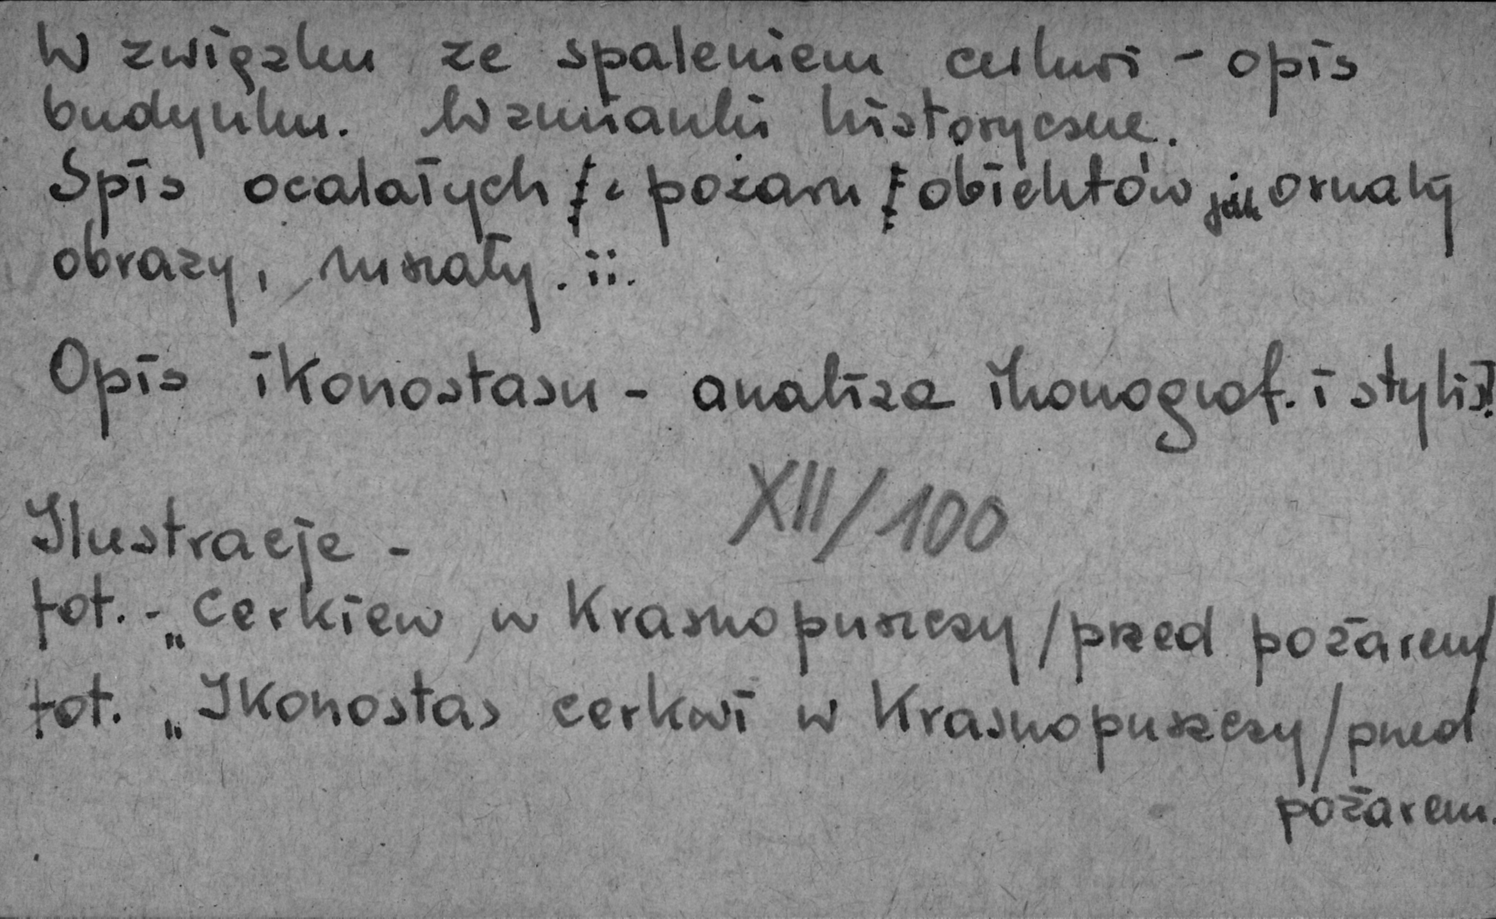 W związku ze spaleniem cerkwi - opis
budynku. Wzmianki historyczne.
Spis ocalałych z pożaru obiektów jak ornaty
obrazy, mszały. i i.
Opis ikonostasu - analiza ikonograf. i stylist.
XII/100
Ilustracje -
fot. - „Cerkiew w Krasnopuszczy /przed pożarem/
fot. „Ikonostas cerkwi w Krasnopuszczy /przed
pożarem.